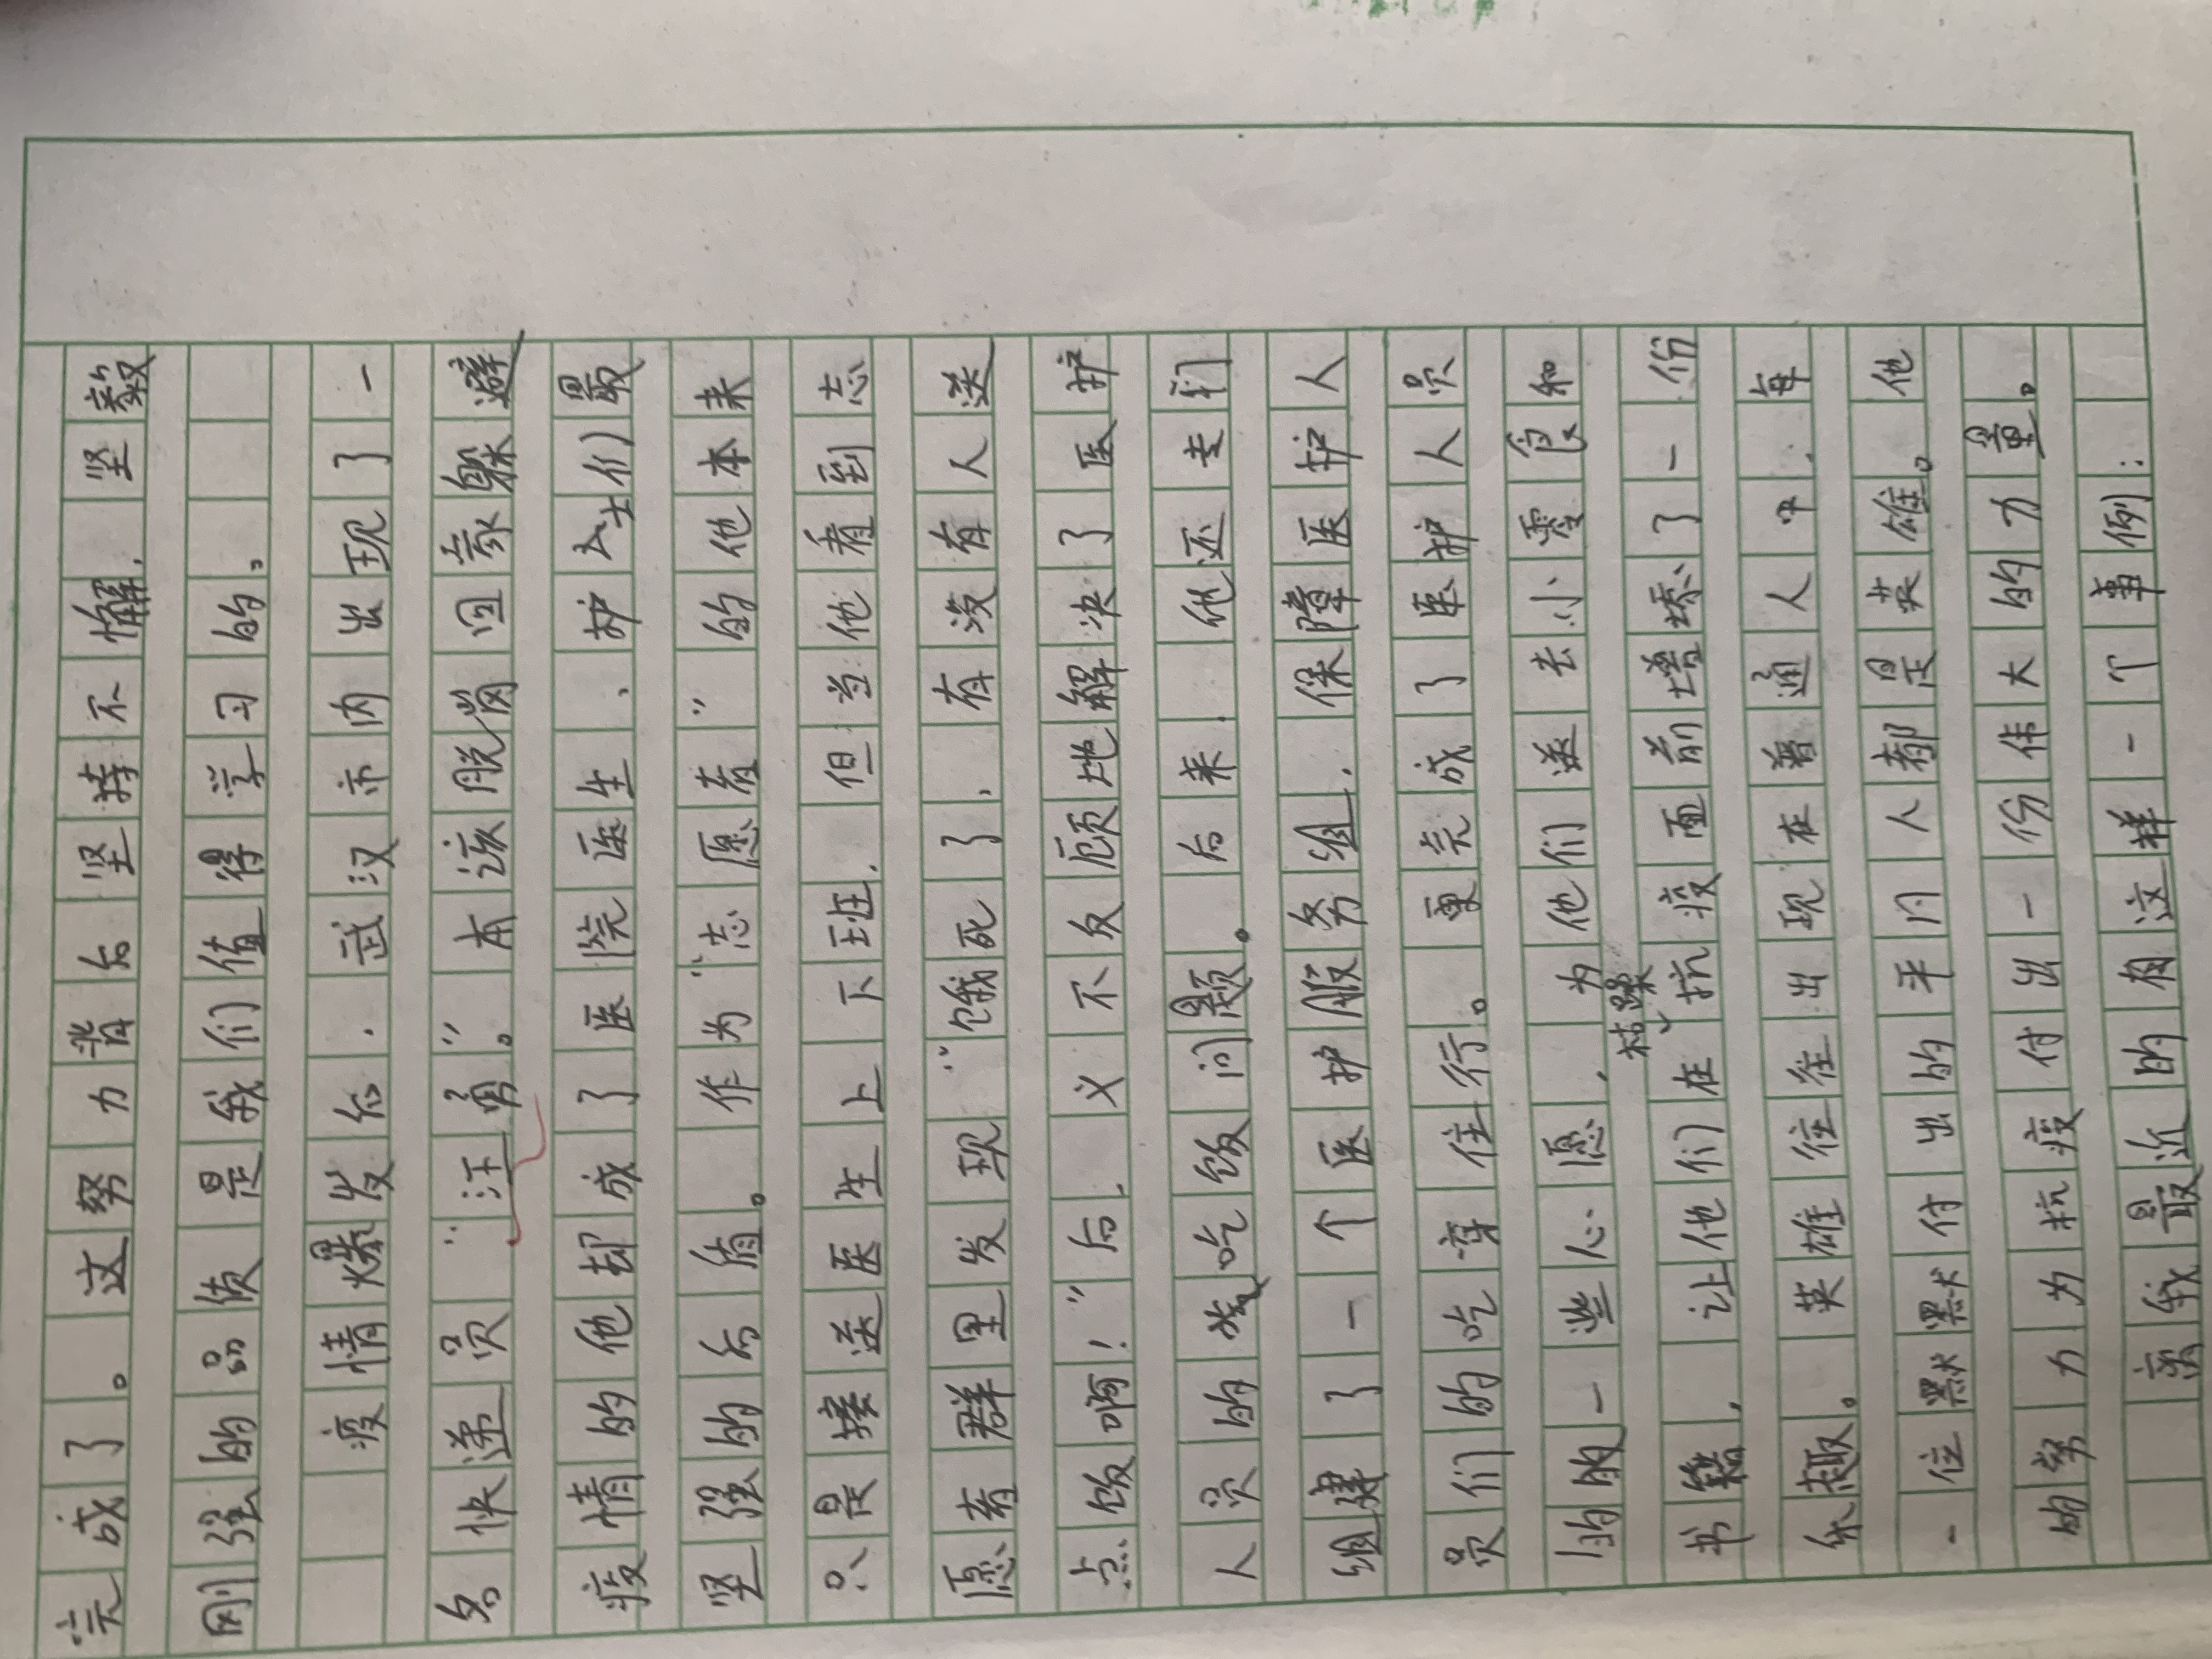 完成了。这努力背后坚持不懈,坚毅
刚强的品质是我们值得学习的。
疫情爆发后,武汉市内出现了一
名快递员“汪勇”。本该脱岗回家躲避
疫情的他却成了医院医生、护士们最
坚强的后盾。作为“志愿者”的他本来
只是接送医生上下班,但当他看到志
愿者群里发现“饿死了,有没有人送
点饭啊!”后,义不反顾地解决了医护
人员的吃饭问题。后来,他还专门
组建了一个医护服务组,保障医护人
员们的吃穿住行。更完成了医护人员
们的一些心愿,为他们送去小零食和
书籍,让他们在枯燥抗疫面前增添了一份
乐趣。英雄往往出现在普通人中,每
一位默默付出的平凡人都是英雄。他
的努力为抗疫付出一份伟大的力量。
离我最近的有这样一个事例: